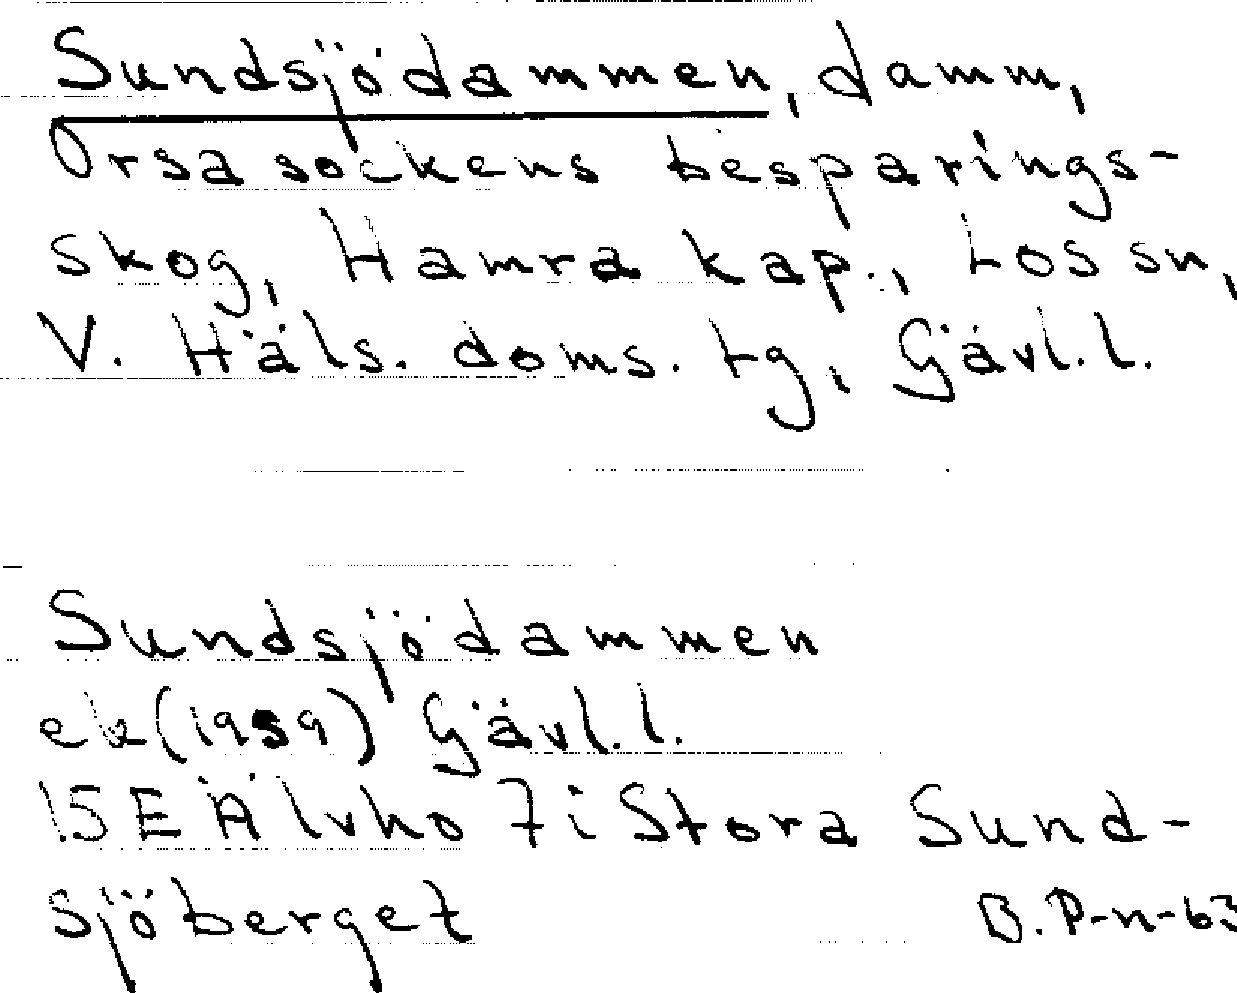 Sundsjödammen, damm,
Orsa sockens besparings-
skog, Hamra kap., Los sn,
V. Häls. doms. tg, Gävl.l.
Sundsjödammen
ek (1959) Gävl.l.
15E Älvho 7i Stora Sund-
sjöberget
B.P-n-63